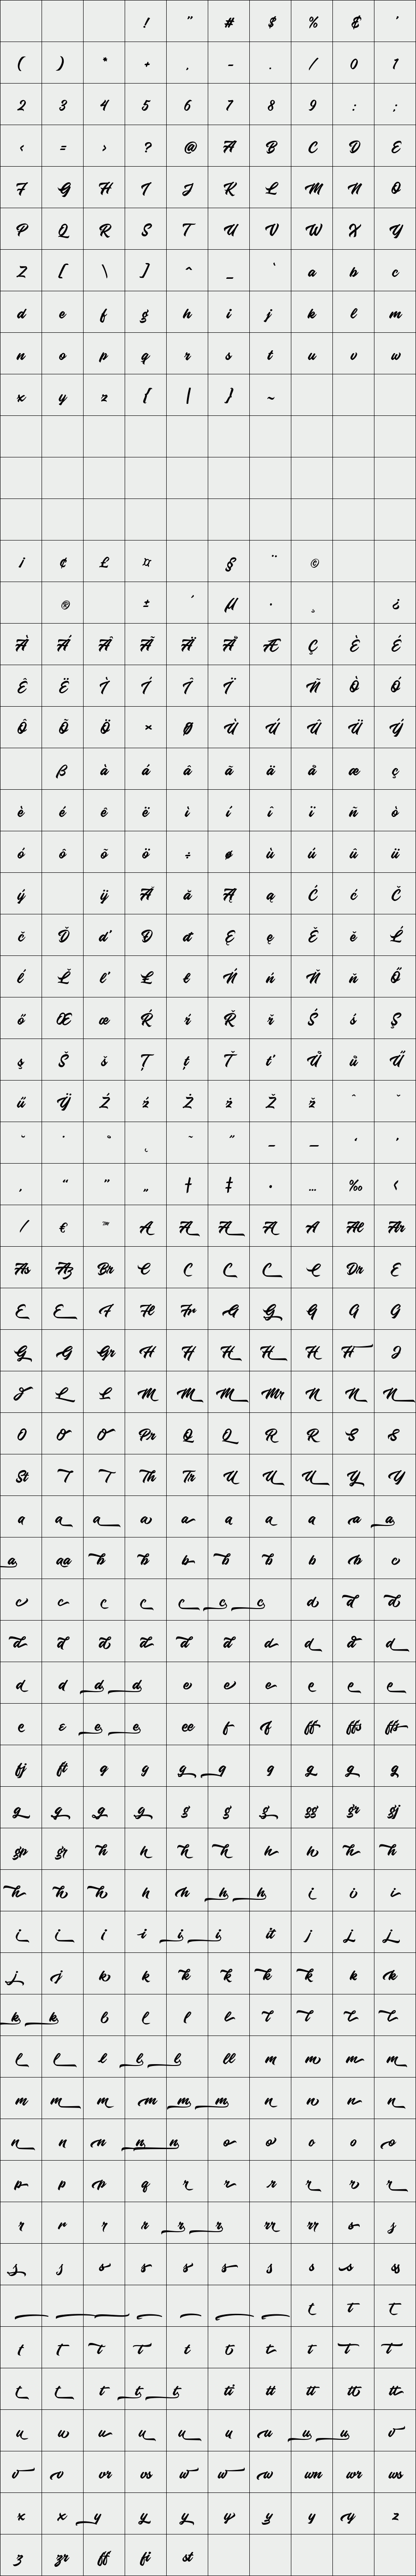 ! " # $ % ₡ '
( ) * + , - . / 0 1
2 3 4 5 6 7 8 9 : ;
< = > ? @ A B C D E
F G H I J K L M N O
P Q R S T U V W X Y
Z [ \ ] ^ _ ` a b c
d e f g h i j k l m
n o p q r s t u v w
x y z { | } ~
¡ ¢ £ ¤ § ¨ ©
® ± ´ µ · ¸ ¿
À Á Â Ã Ä Å Æ Ç È É
Ê Ë Ì Í Î Ï Ñ Ò Ó
Ô Õ Ö × Ø Ù Ú Û Ü Ý
ß à á â ã ä å æ ç
è é ê ë ì í î ï ñ ò
ó ô õ ö ÷ ø ù ú û ü
ý ÿ Ă ă Ą ą Ć ć Č
č Ď ď Đ đ Ę ę Ě ě Ĺ
ĺ Ľ ľ Ł ł Ń ń Ň ň Ő
ő Œ œ Ŕ ŕ Ř ř Ś ś Ş
ş Š š Ţ ţ Ť ť Ů ů Ű
ű Ÿ Ź ź Ż ż Ž ž ˆ ˇ
˘ ˙ ˚ ˛ ˜ ˝ – — ‘ ’
‚ “ ” „ † ‡ • … ‰ ‹
⁄ € ™ A A A A A Al Ar
As Az Br C C C C C Dr E
E E F Fl Fr G G G G G
G G Gr H H H H H H J
J L L M M M Mr N N N
O O O Pr Q Q R R S S
St T T Th Tr U U U Y Y
a a a a a a a a a a
a aa b b b b b b b c
c c c c c c c d d d
d d d d d d d d d d
d d d d e e e e e e
e e e e ee f f ff ffs ffs
fj ft g g g g g g g g
g g g g g g g gg gr gj
gp gr h h h h h h h h
h h h h h h h i i i
i i i i i i it j j j
j j k k k k k k k k
k k l l l l l l l l
l l l l l ll m m m m
m m m m m m n n n n
n n n n n o o o o o
p p p q r r r r r r
r r r r r r rr rr s j
j j s s s s s s s ss
t t t
t t t t t t t t t t
t t t t t ti tt tt tt tt
u u u u u u u u u v
v v vr vs w w w wn wr ws
x x y y y y y y y z
z zr ff fi st